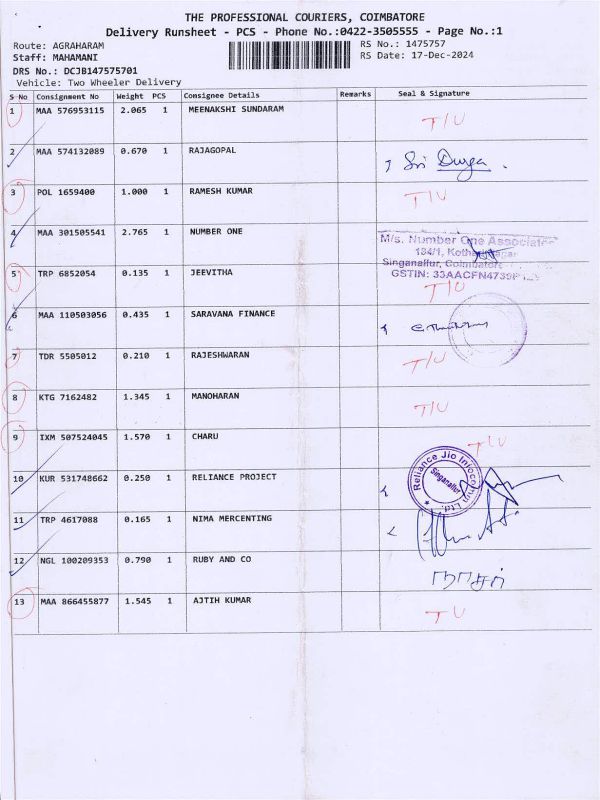 THE PROFESSIONAL COURIERS, COIMBATORE
Delivery Runsheet - PCS - Phone No.:0422-3505555 - Page No.:1
Route: AGRAHARAM
RS No.: 1475757
Staff: MAHAMANI
RS Date: 17-Dec-2024
DRS No.: DCJB147575701
Vehicle: Two Wheeler Delivery
S No Consignment No Weight PCS Consignee Details Remarks Seal & Signature
1 MAA 576953115 2.065 1 MEENAKSHI SUNDARAM T/U
2 MAA 574132089 0.670 1 RAJAGOPAL Sri Durga
3 POL 1659400 1.000 1 RAMESH KUMAR T/U
4 MAA 301505541 2.765 1 NUMBER ONE
M/s. Number One Associates
184/1,
Singanallur, Coimbatore
GSTIN:
5 TRP 6852054 0.135 1 JEEVITHA T/U
6 MAA 110503056 0.435 1 SARAVANA FINANCE
7 TDR 5505012 0.210 1 RAJESHWARAN T/U
8 KTG 7162482 1.345 1 MANOHARAN T/U
9 IXM 507524045 1.570 1 CHARU T/U
10 KUR 531748662 0.250 1 RELIANCE PROJECT
Reliance Jio Infocomm Ltd.
Singanallur
11 TRP 4617088 0.165 1 NIMA MERCENTING
12 NGL 100209353 0.790 1 RUBY AND CO
13 MAA 866455877 1.545 1 AJTIH KUMAR T/U